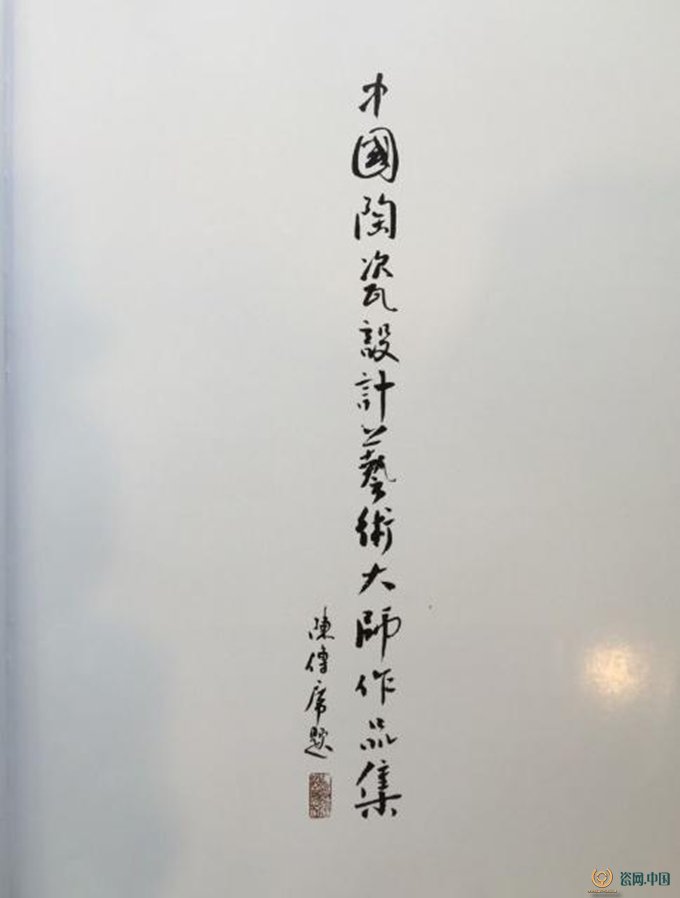 中國陶瓷設計藝術大師作品集
陳傳席題
瓷网.中国